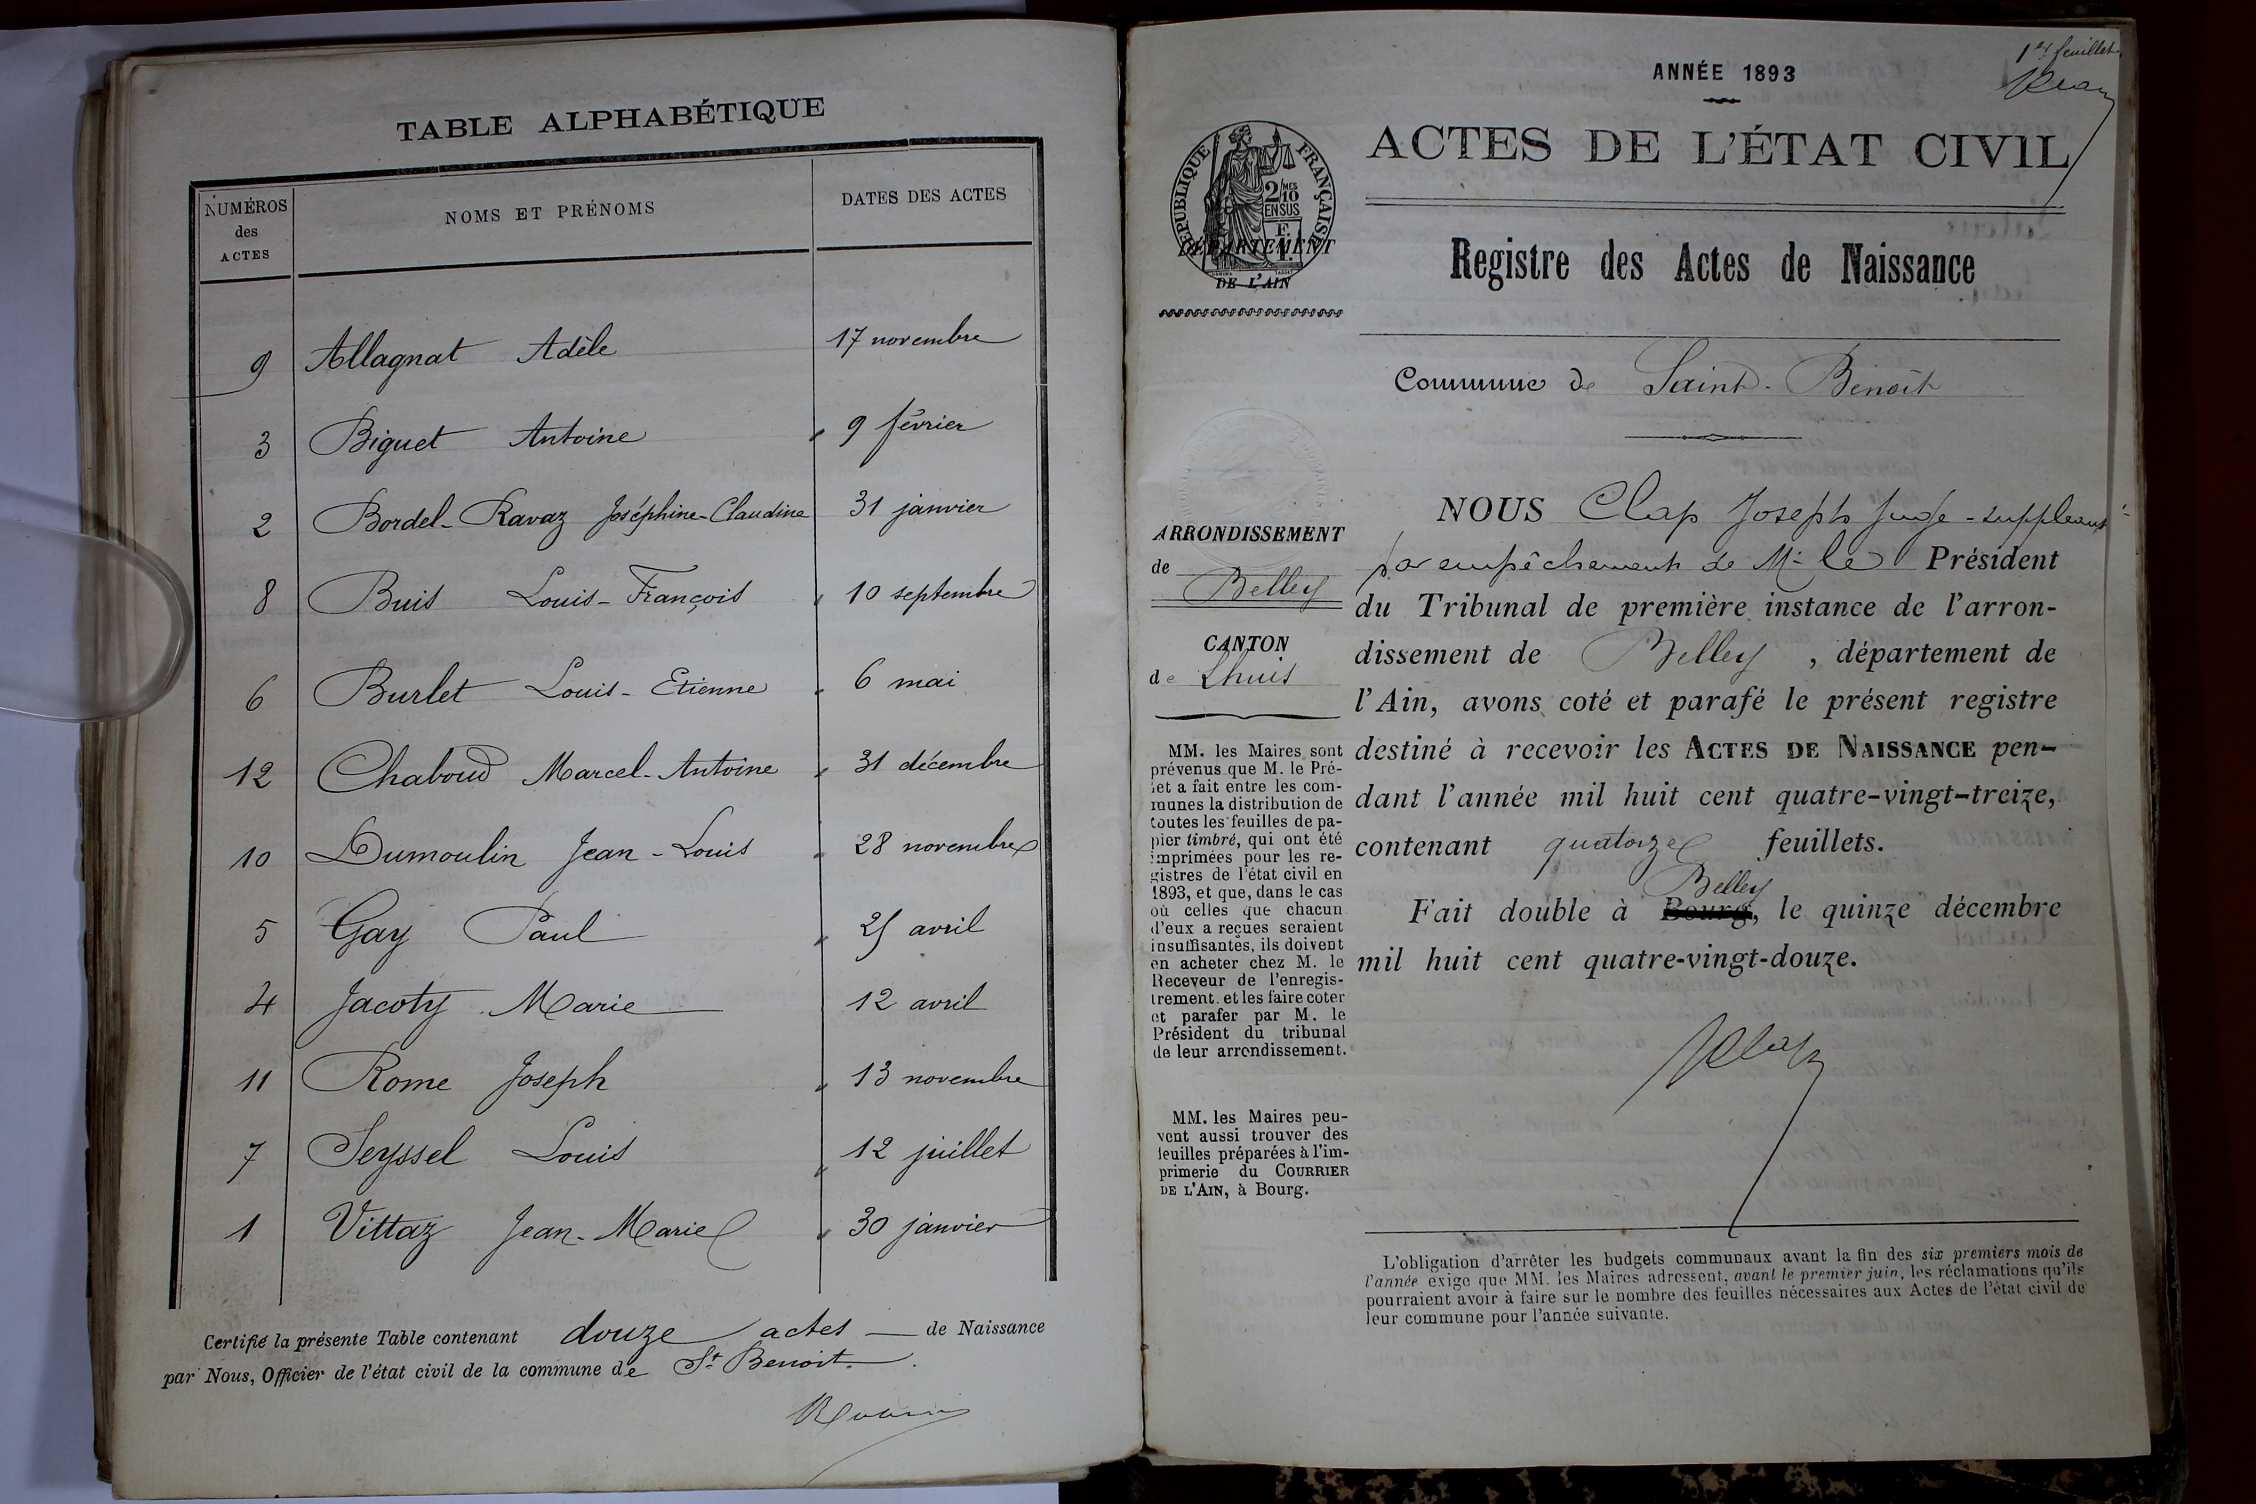 TABLE ALPHABÉTIQUE
NUMÉROS des ACTES
NOMS ET PRÉNOMS
DATES DES ACTES
9 Allagnat Adèle 17 novembre
3 Biguet Antoine " 9 février
2 Bordel-Ravaz Joséphine-Claudine 31 janvier
8 Buis Louis-François " 10 septembre
6 Burlet Louis-Etienne " 6 mai
12 Chaboud Marcel-Antoine " 31 décembre
10 Dumoulin Jean-Louis " 28 novembre
5 Gay Paul " 25 avril
4 Jacoty Marie 12 avril
11 Rome Joseph " 13 novembre
7 Seyssel Louis " 12 juillet
1 Vittaz Jean-Marie " 30 janvier
Certifié la présente Table contenant douze actes — de Naissance
par Nous, Officier de l'état civil de la commune de St Benoit.
1er feuillet
ANNÉE 1893
ACTES DE L'ÉTAT CIVIL
RÉPUBLIQUE FRANÇAISE
2/10MES
EN SUS
DÉPARTEMENT
DE L'AIN
Registre des Actes de Naissance
Commune de Saint-Benoît
ARRONDISSEMENT
de Belley
CANTON
de Lhuis
MM. les Maires sont
prévenus que M. le Pré-
fet a fait entre les com-
munes la distribution de
toutes les feuilles de pa-
pier timbré, qui ont été
imprimées pour les re-
gistres de l'état civil en
1893, et que, dans le cas
où celles que chacun
d'eux a reçues seraient
insuffisantes, ils doivent
en acheter chez M. le
Receveur de l'enregis-
trement et les faire coter
et parafer par M. le
Président du tribunal
de leur arrondissement.
MM. les Maires peu-
vent aussi trouver des
feuilles préparées à l'im-
primerie du COURRIER
DE L'AIN, à Bourg.
NOUS Clap Joseph Juge-suppléant
par empêchement de Mr le Président
du Tribunal de première instance de l'arron-
dissement de Belley, département de
l'Ain, avons coté et parafé le présent registre
destiné à recevoir les ACTES DE NAISSANCE pen-
dant l'année mil huit cent quatre-vingt-treize,
contenant quatorze feuillets.
Belley
Fait double à Bourg, le quinze décembre
mil huit cent quatre-vingt-douze.
Clap
L'obligation d'arrêter les budgets communaux avant la fin des six premiers mois de
l'année exige que MM. les Maires adressent, avant le premier juin, les réclamations qu'ils
pourraient avoir à faire sur le nombre des feuilles nécessaires aux Actes de l'état civil de
leur commune pour l'année suivante.